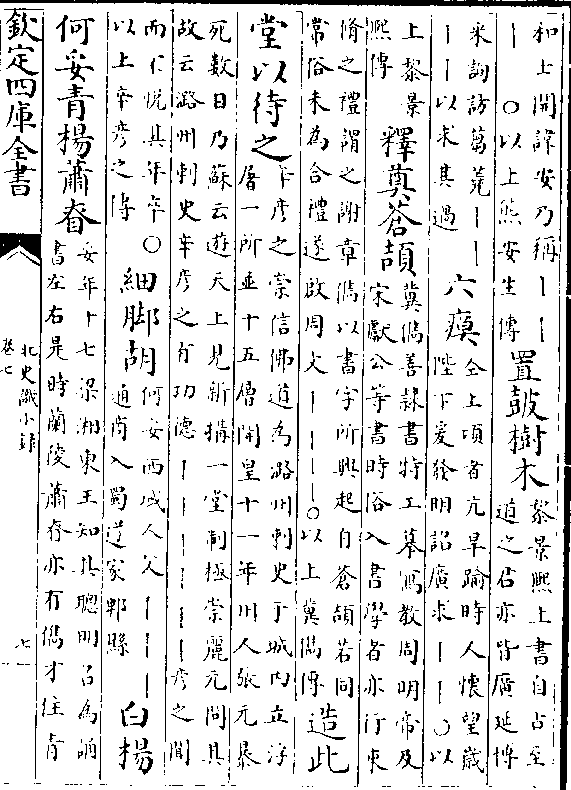 和士開諱安乃稱｜｜
｜　○以上熊安生傳
置鼓樹木
黎景熙上書自古至
道之君亦皆廣延博
采詢訪蒭蕘｜｜
｜｜以求其過
六瘼
仝上頃者亢旱踰時人懷望歲
陛下爰發明詔廣求｜｜○以
上黎景
熙傳
釋奠蒼頡
冀儁善隸書特工摹寫教周明帝及
宋獻公等書時俗入書學者亦行束
脩之禮謂之謝章儁以書字所興起自蒼頡若同
常俗未為合禮遂啟周文｜｜｜｜○以上冀儁傳
造此
堂以待之
辛彦之崇信佛道為潞州刺史于城内立浮
屠一所並十五層開皇十一年州人張元暴
死數日乃蘇云遊天上見新構一堂制極崇麗元問其
故云潞州刺史辛彦之有功德｜｜｜｜｜彦之聞
而不悦其年卒○
以上辛彦之傳
細脚胡
何妥西域人父｜｜｜
通商入蜀遂家郫縣
白楊
何妥青楊蕭眘
妥年十七梁湘東王知其聰明召為誦
書左右是時蘭陵蕭眘亦有儁才住青
欽定四庫全書
北史識小錄
卷七
七